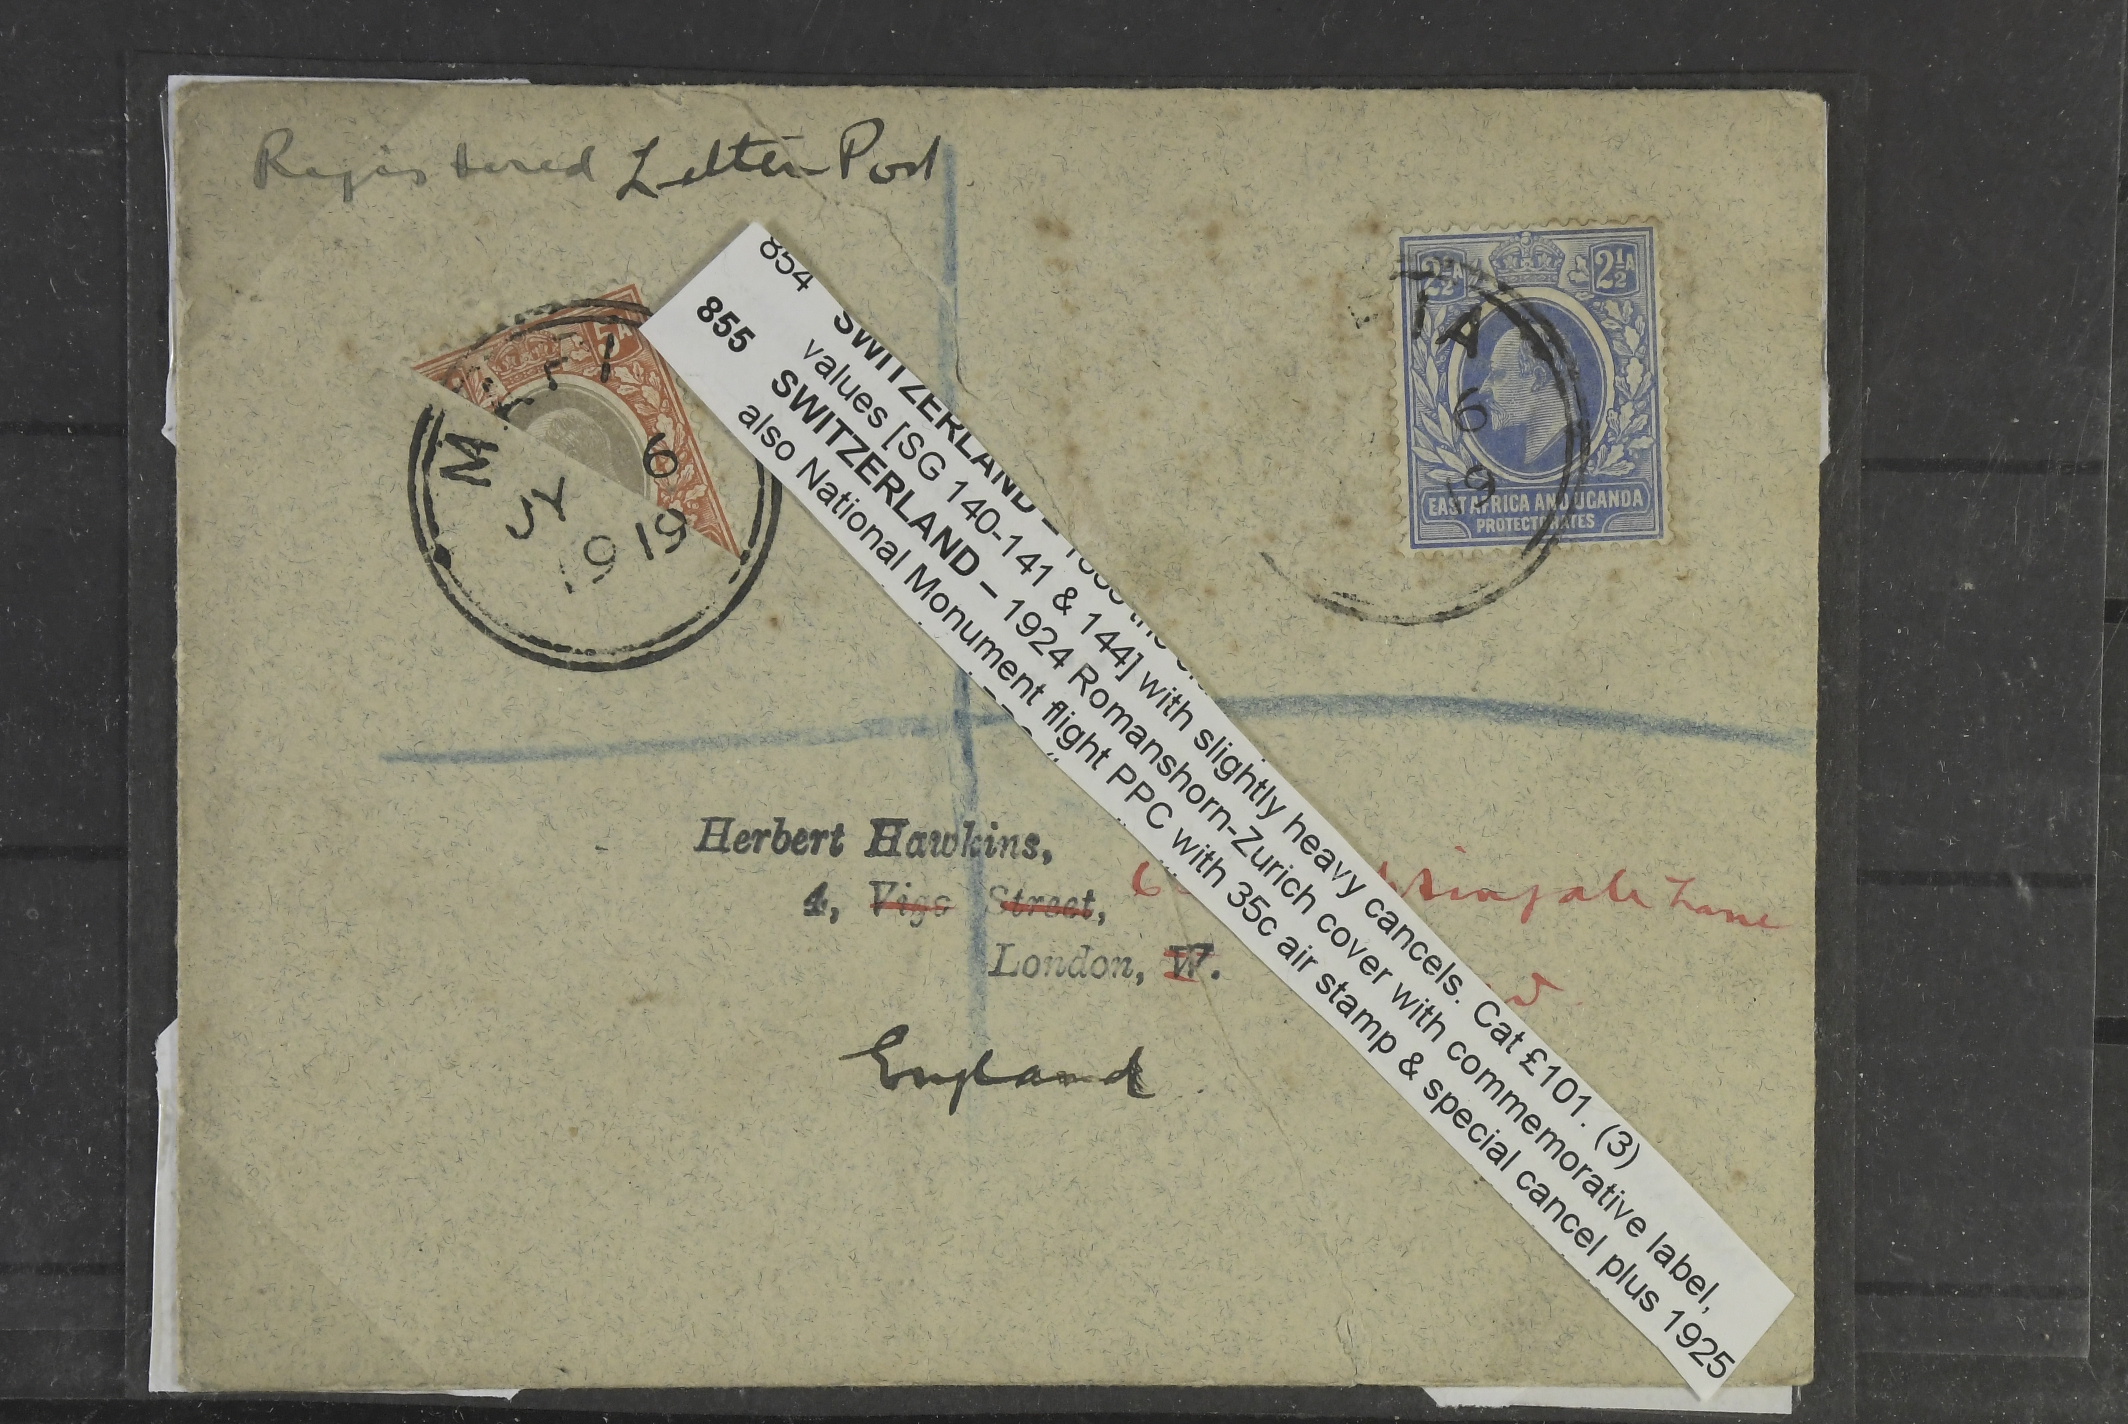 Registered Letter Post
5A
2½A 2½A
EAST AFRICA AND UGANDA
PROTECTORATES
IA
6
19
M
6
JY
19
19
854
855
SWITZERLAND –
values [SG 140-141 & 144] with slightly heavy cancels. Cat £101. (3)
SWITZERLAND – 1924 Romanshorn-Zurich cover with commemorative label,
also National Monument flight PPC with 35c air stamp & special cancel plus 1925
Herbert Hawkins,
4, Vigo Street,
Lane
London, W.
England